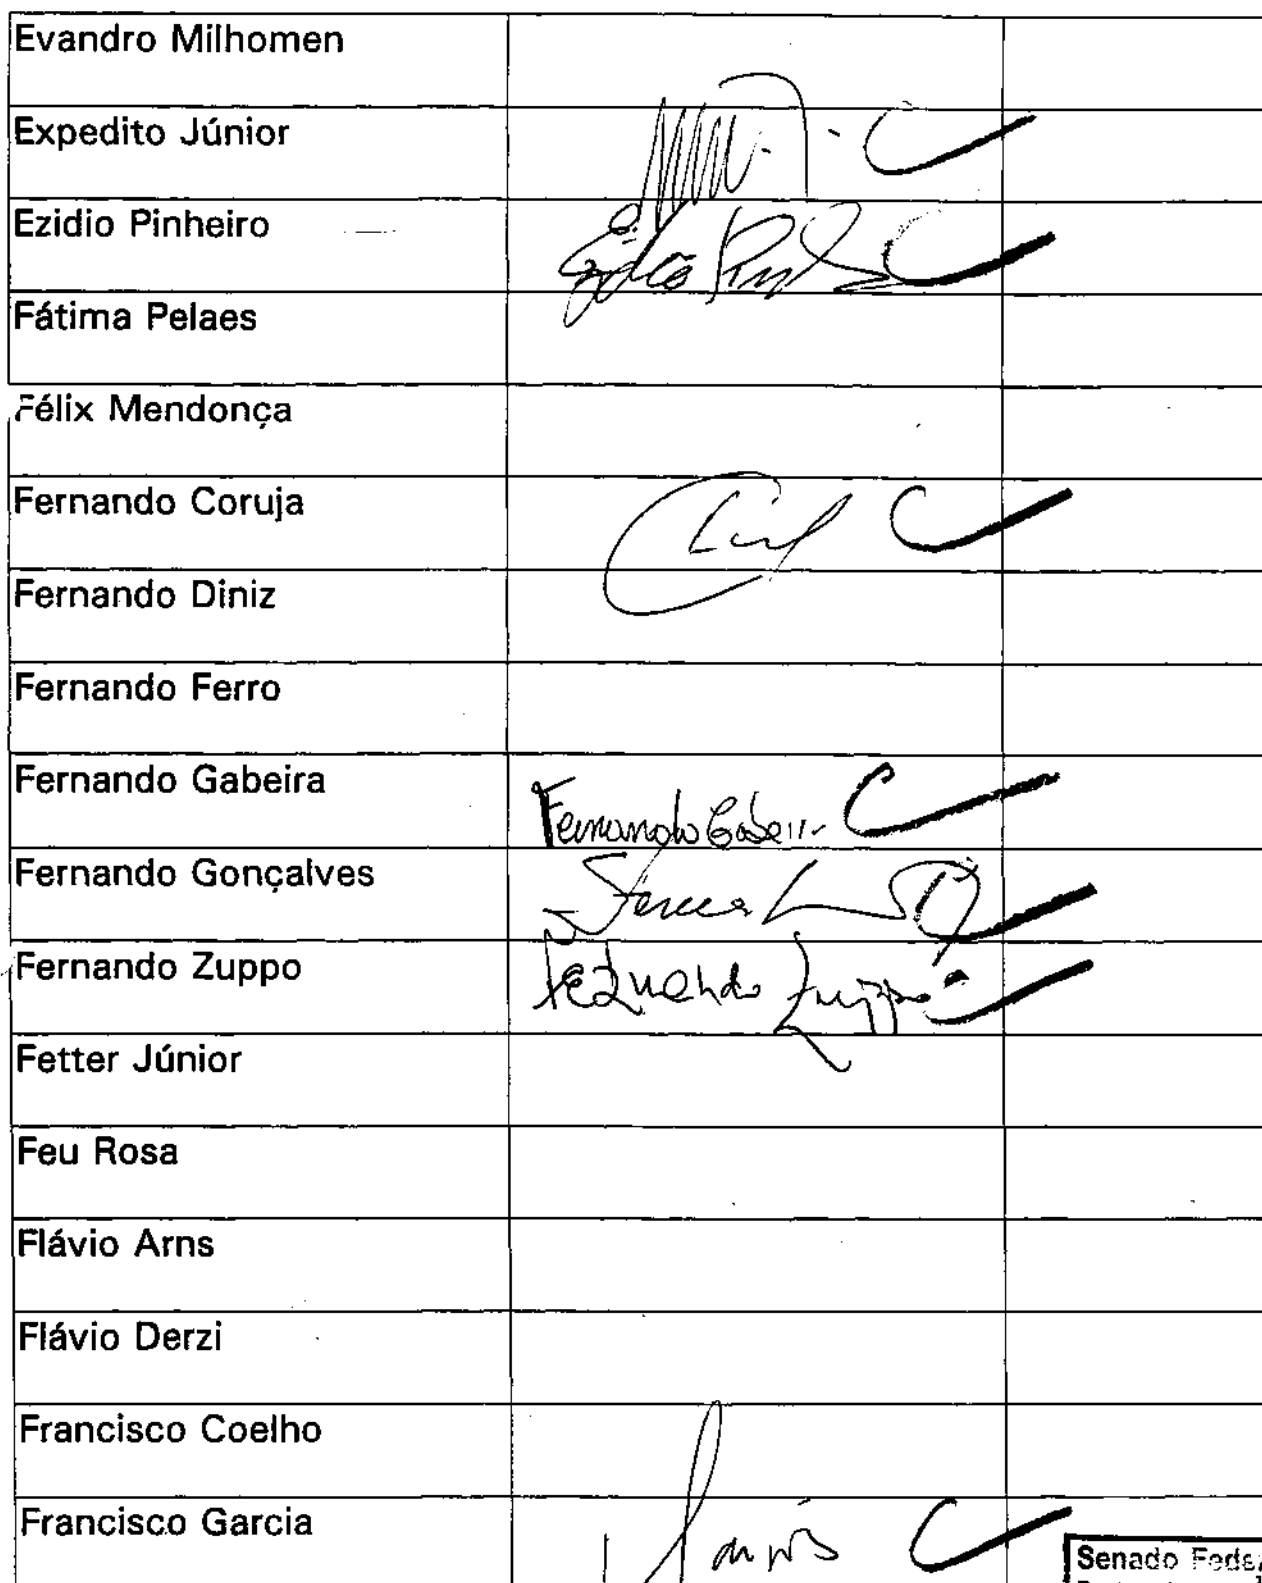 Evandro Milhomen
Expedito Júnior
Ezidio Pinheiro
Fátima Pelaes
Félix Mendonça
Fernando Coruja
Fernando Diniz
Fernando Ferro
Fernando Gabeira
Fernando Gonçalves
Fernando Zuppo Fernando Zuppo
Fetter Júnior
Feu Rosa
Flávio Arns
Flávio Derzi
Francisco Coelho
Francisco Garcia
Senado